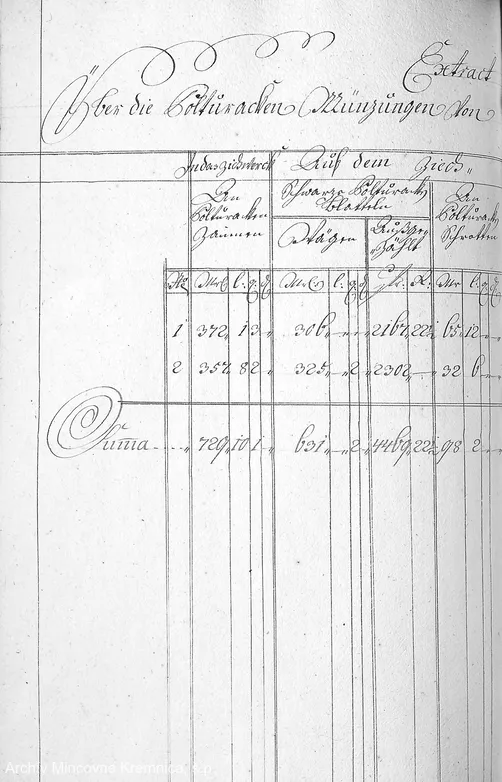 Extract
Über die Polturacken Münzungen Von
In das Ziechwerck Auf dem Ziech-
An Polturacken Zainen
Schwarze Polturacken Blatteln
An Polturacken Schrotten
Wägen
Außgezählt
No Mrk l. q. d Mrk l. q. d fr. X. Mr l. q. d
1 372 1 3 „ 306 — — „ 2167 22½ 65 12 — „
2 357 8 2 „ 325 — 2 „ 2302 — 32 6 — „
Suma 729 10 1 „ 631 — 2 „ 4469 22½ 98 2 — „
Archív Mincovne Kremnica, š.p.